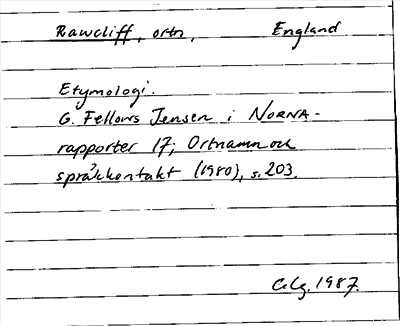 Rawcliff, ortn, England
Etymologi.
G. Fellows Jensen i NORNA-
rapporter 17; Ortnamn och
språkkontakt (1980), s. 203.
1987.